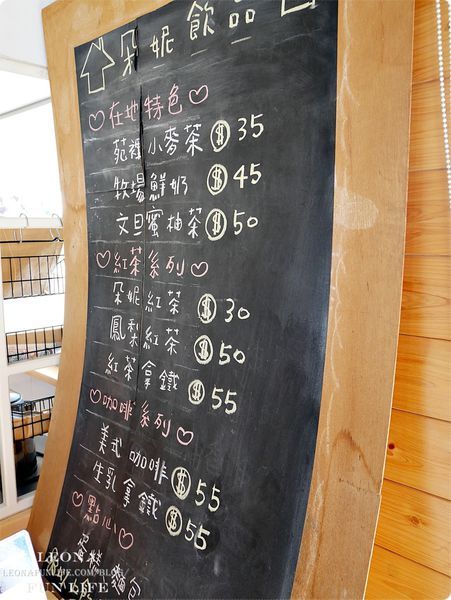 朵妮飲品
♡在地特色♡
苑裡小麥茶 $ 35
牧場鮮奶 $ 45
文旦蜜柚茶 $ 50
♡紅茶系列♡
朵妮紅茶 $ 30
鳳梨紅茶 $ 50
紅茶拿鐵 $ 55
♡咖啡系列♡
美式咖啡 $ 55
生乳拿鐵 $ 55
♡點心♡
麵包
LEONA
LEONAFUNLIFE.COM/BLOG/
FUN LIFE